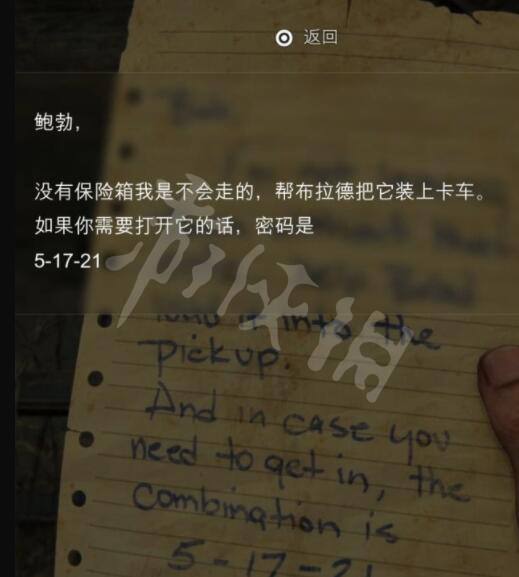 返回
鲍勃，
没有保险箱我是不会走的，帮布拉德把它装上卡车。
如果你需要打开它的话，密码是
5-17-21
into the
pickup.
And in case you
need to get in, the
combination is
5-17-21